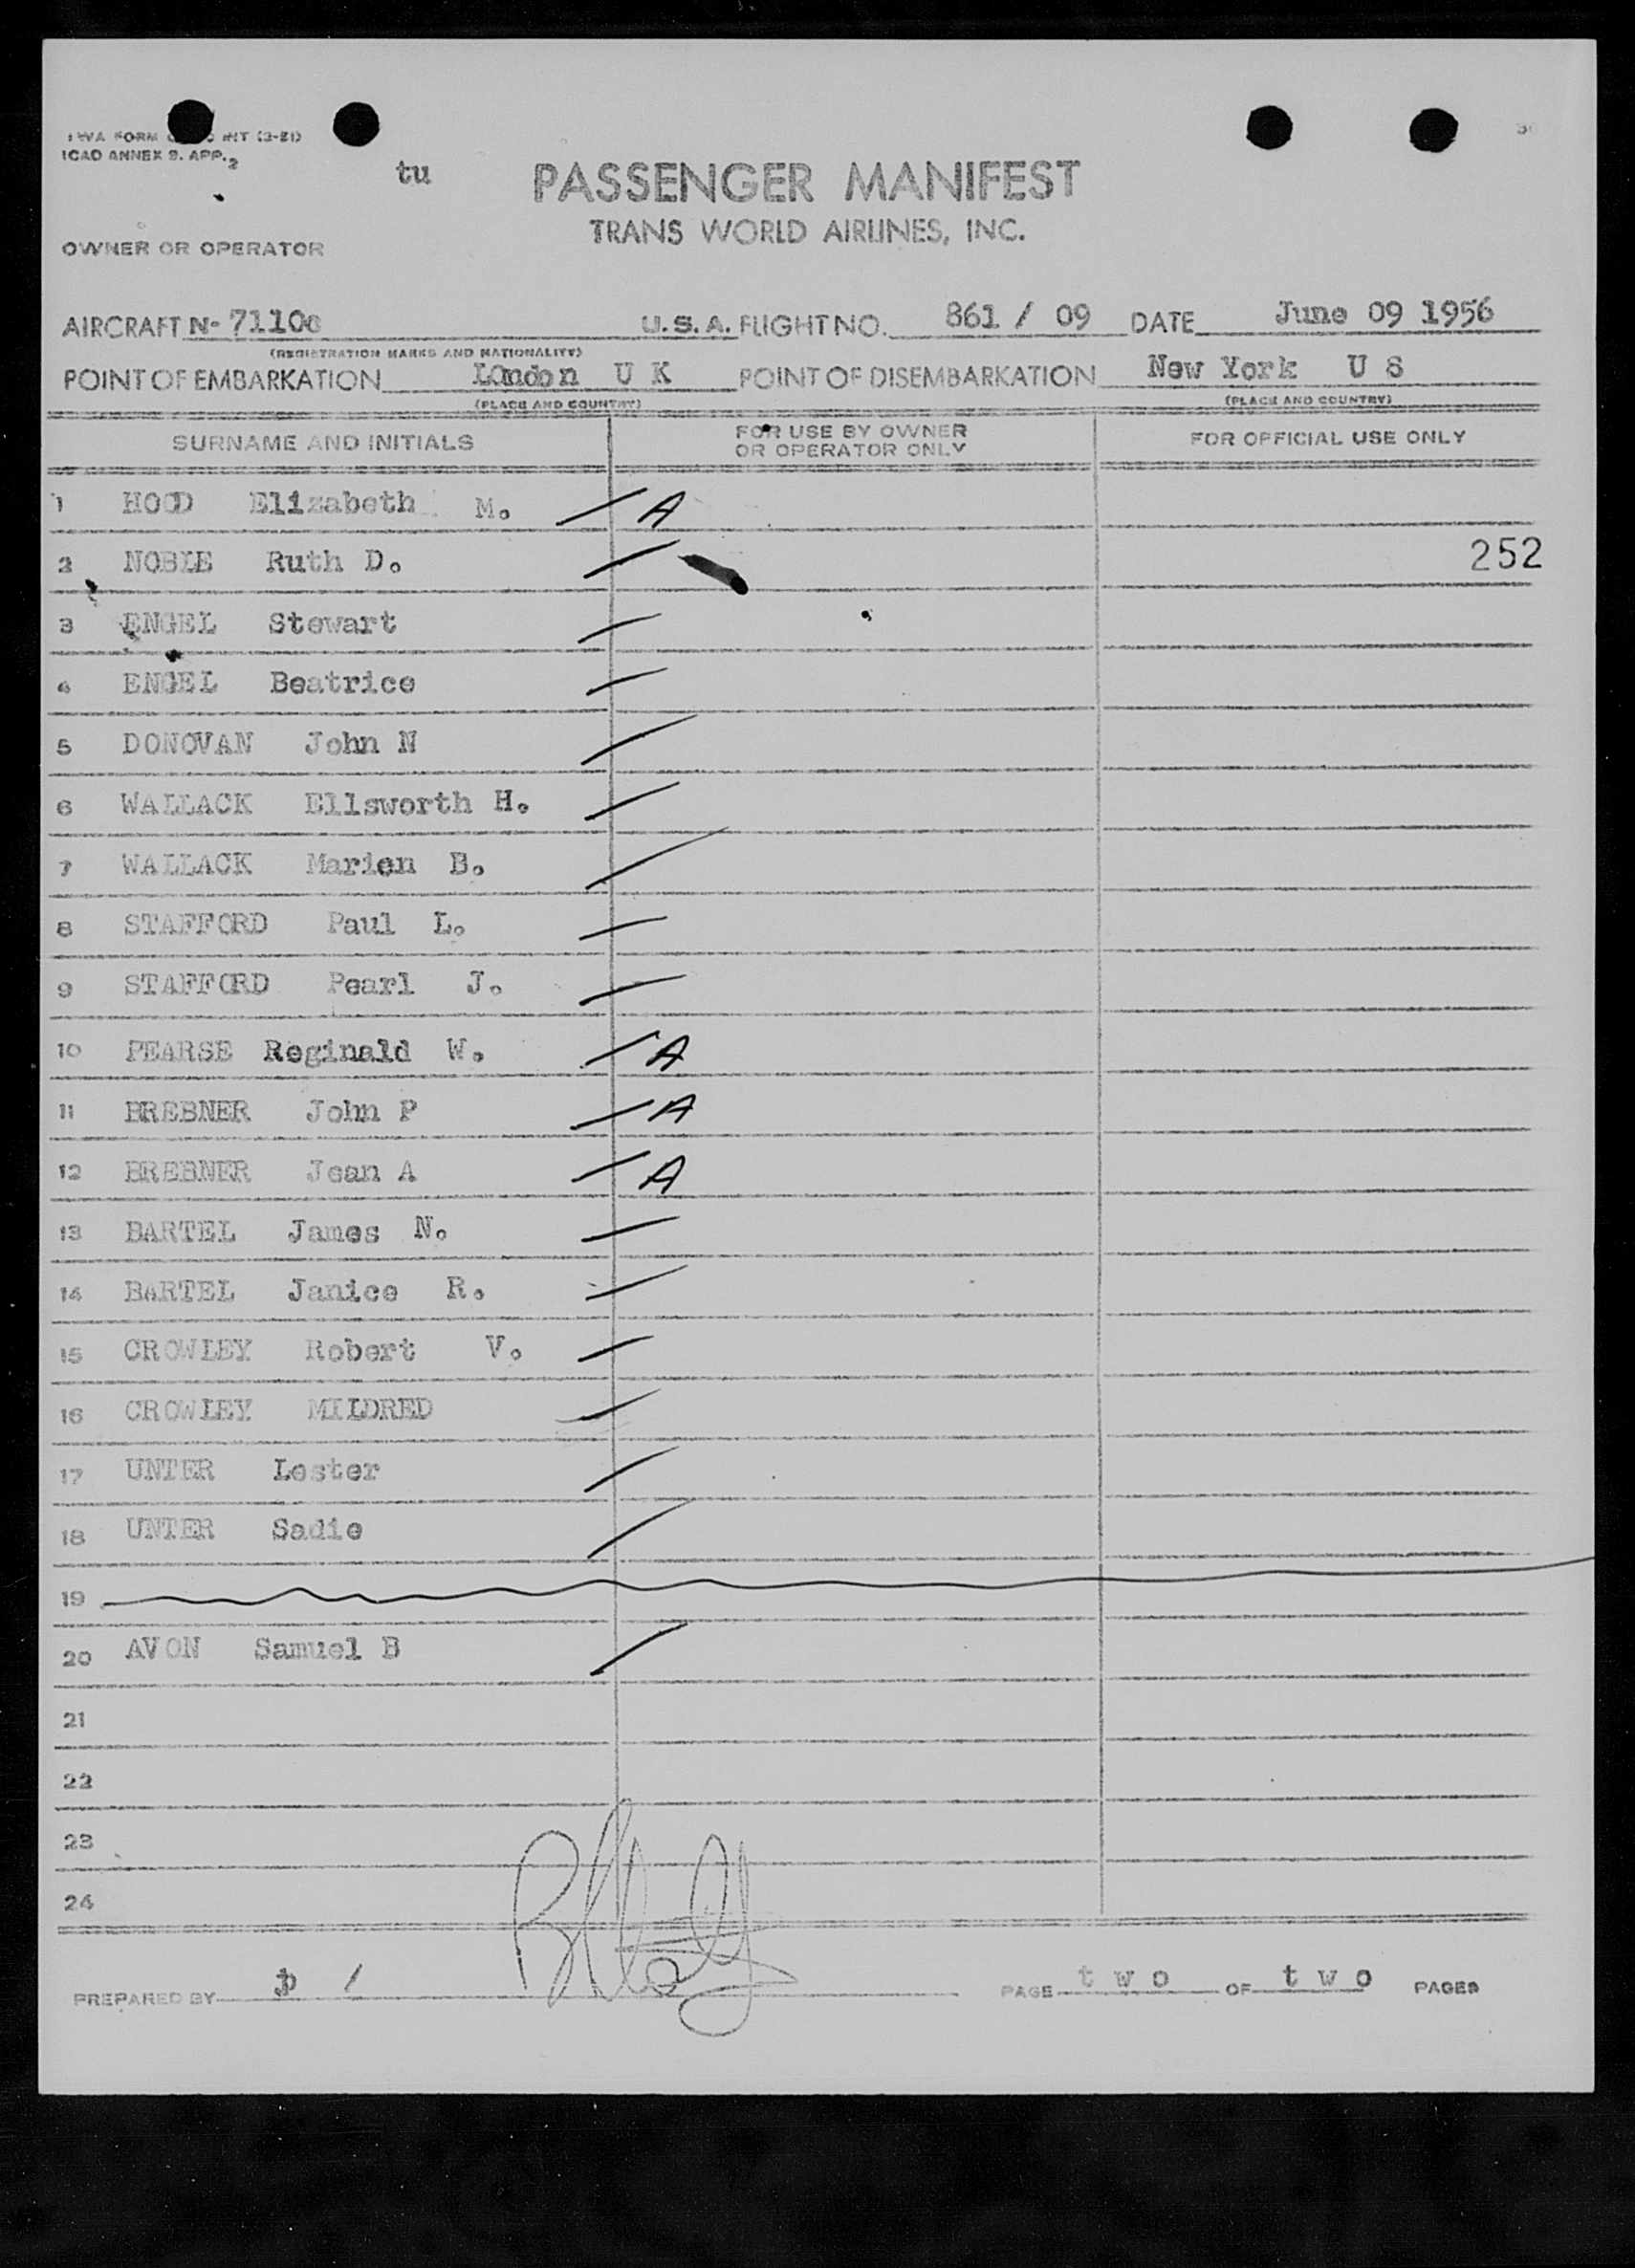 ICAO ANNEX 9. APP. 2
tu
PASSENGER MANIFEST
TRANS WORLD AIRLINES, INC.
OWNER OR OPERATOR
AIRCRAFT N- U.S.A. FLIGHT NO. 861 / 09 DATE June 09 1956
(REGISTRATION MARKS AND NATIONALITY)
POINT OF EMBARKATION LOndon U K POINT OF DISEMBARKATION New York U S
(PLACE AND COUNTRY) (PLACE AND COUNTRY)
SURNAME AND INITIALS FOR USE BY OWNER OR OPERATOR ONLY FOR OFFICIAL USE ONLY
1 HOOD Elizabeth M. / A
2 NOBLE Ruth D. / 252
3 ENGEL Stewart /
4 ENGEL Beatrice /
5 DONOVAN John N /
6 WALLACK Ellsworth H. /
7 WALLACK Marien B. /
8 STAFFORD Paul L. /
9 STAFFORD Pearl J. /
10 PEARSE Reginald W. / A
11 BREBNER John P / A
12 BREBNER Jean A / A
13 BARTEL James N. /
14 BARTEL Janice R. /
15 CROWLEY Robert V. /
16 CROWLEY MILDRED /
17 UNTER Lester /
18 UNTER Sadie /
19
20 AVON Samuel B /
21
22
23
24
PREPARED BY / PAGE two OF two PAGES